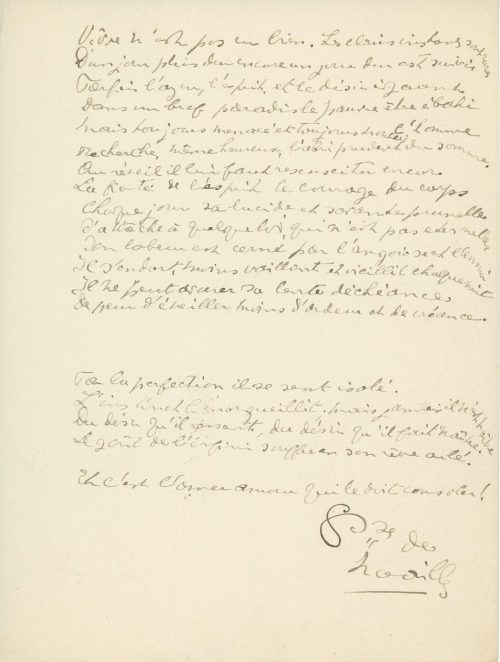 Vivre n'est pas un bien. Les clairs instants sont rares
D'un jour plus dur encore un jour dur est suivi
Parfois l'azur, l'esprit, et le désir
Dans un bref paradis le pauvre être
Mais toujours menacé et toujours l'homme
Recherche, même heureux, l'abri prudent du somme.
Au réveil il lui faut ressusciter encor
La fierté de l'esprit le courage du corps
Chaque jour sa lucide et savante prunelle
S'attache à quelque loi qui n'est pas éternelle
Son labeur est cerné par l'angoisse et l'ennui
Il s'endort, moins vaillant et vieillit chaque nuit
Il ne peut avouer sa lente déchéance
De peur d'éveiller moins d'ardeur et de créance.
Par la perfection il se sent isolé.
L'instinct l'enorgueillit, mais jamais il n'est
Du désir qu'il ressent, du désir qu'il fait naître
Le goût de l'infini souffre en son rêve ailé.
Et c'est l'amer amour qui le doit consoler!
Csse de
Noailles